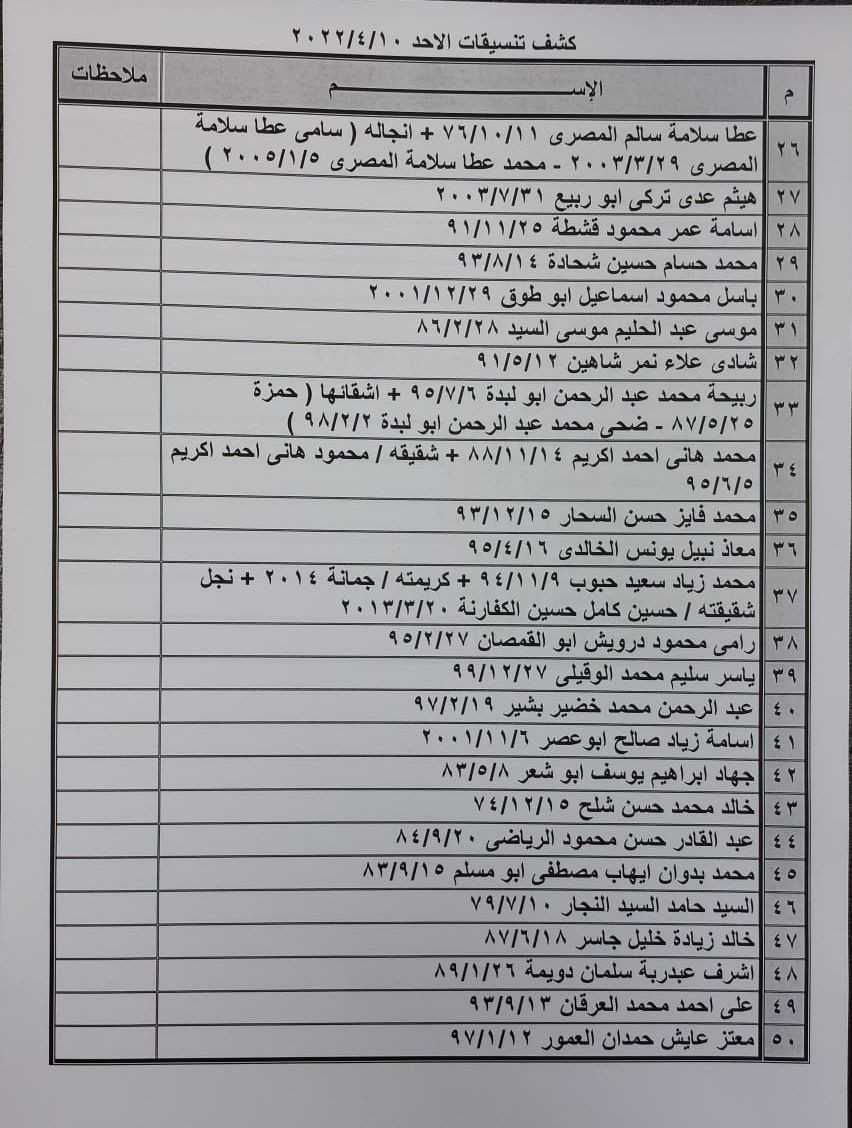 كشف تنسيقات الاحد ٢٠٢٢/٤/١٠
م الإســـــم ملاحظات
٢٦ عطا سلامة سالم المصرى ٧٦/١٠/١١ + انجاله ( سامى عطا سلامة
المصرى ٢٠٠٣/٣/٢٩ - محمد عطا سلامة المصرى ٢٠٠٥/١/٥ )
٢٧ هيثم عدى تركى ابو ربيع ٢٠٠٣/٧/٣١
٢٨ اسامة عمر محمود قشطة ٩١/١١/٢٥
٢٩ محمد حسام حسين شحادة ٩٣/٨/١٤
٣٠ باسل محمود اسماعيل ابو طوق ٢٠٠١/١٢/٢٩
٣١ موسى عبد الحليم موسى السيد ٨٦/٢/٢٨
٣٢ شادى علاء نمر شاهين ٩١/٥/١٢
٣٣ ربيحة محمد عبد الرحمن ابو لبدة ٩٥/٧/٦ + اشقائها ( حمزة
٨٧/٥/٢٥ - ضحى محمد عبد الرحمن ابو لبدة ٩٨/٢/٢ )
٣٤ محمد هانى احمد اكريم ٨٨/١١/١٤ + شقيقه / محمود هانى احمد اكريم
٩٥/٦/٥
٣٥ محمد فايز حسن السحار ٩٣/١٢/١٥
٣٦ معاذ نبيل يونس الخالدى ٩٥/٤/١٦
٣٧ محمد زياد سعيد حبوب ٩٤/١١/٩ + كريمته / جمانة ٢٠١٤ + نجل
شقيقته / حسين كامل حسين الكفارنة ٢٠١٣/٣/٢٠
٣٨ رامى محمود درويش ابو القمصان ٩٥/٢/٢٧
٣٩ ياسر سليم محمد الوقيلى ٩٩/١٢/٢٧
٤٠ عبد الرحمن محمد خضير بشير ٩٧/٢/١٩
٤١ اسامة زياد صالح ابوعصر ٢٠٠١/١١/٦
٤٢ جهاد ابراهيم يوسف ابو شعر ٨٣/٥/٨
٤٣ خالد محمد حسن شلح ٧٤/١٢/١٥
٤٤ عبد القادر حسن محمود الرياضى ٨٤/٩/٢٠
٤٥ محمد بدوان ايهاب مصطفى ابو مسلم ٨٣/٩/١٥
٤٦ السيد حامد السيد النجار ٧٩/٧/١٠
٤٧ خالد زيادة خليل جاسر ٨٧/٦/١٨
٤٨ اشرف عبدربة سلمان دويمة ٨٩/١/٢٦
٤٩ على احمد محمد العرقان ٩٣/٩/١٣
٥٠ معتز عايش حمدان العمور ٩٧/١/١٢